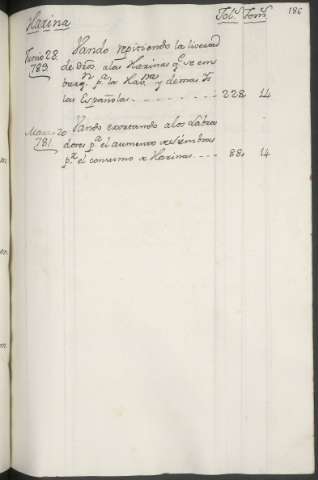 Harina Fol.s Tom.s 186
Junio 28 Vando repitiendo la livertad
783 de dros. alas Harinas q.e se em
barq.n p.a la Hab.na y demas Is
las Españolas 228 14
Marzo 20 Vando exortando alos Labra
781 dores p.a el aumento de siembras
p.a el consumo de Harinas 88 14